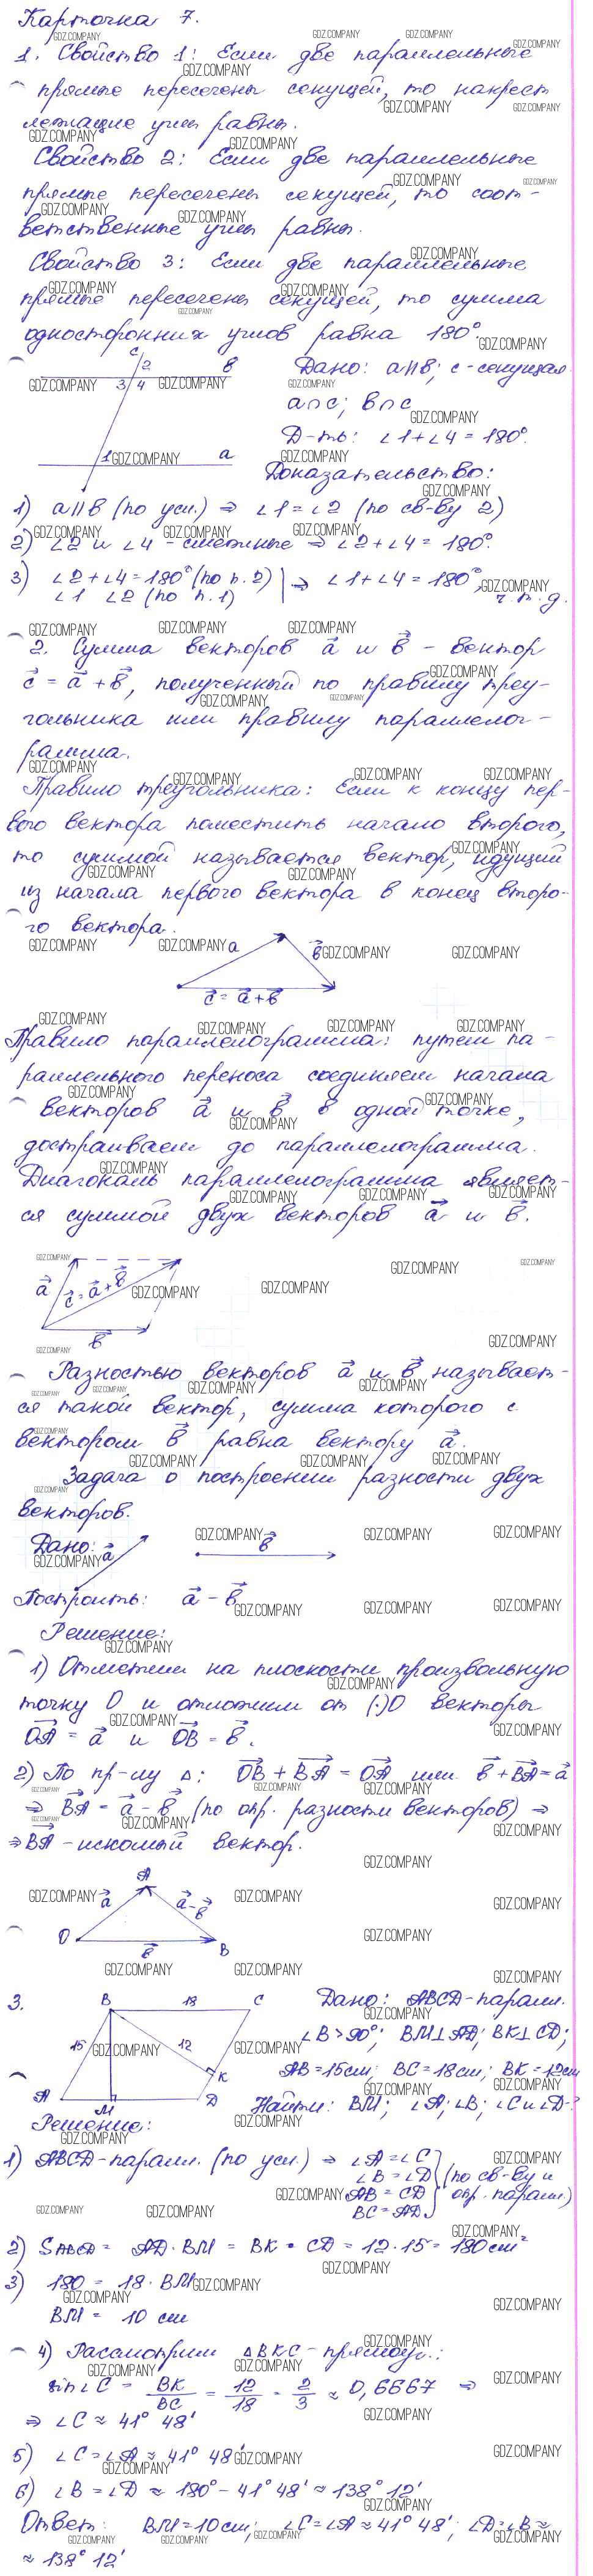 Карточка 7.
1. Свойство 1: Если две параллельные
прямые пересечены секущей, то накрест
лежащие углы равны.
Свойство 2: Если две параллельные
прямые пересечены секущей, то соот-
ветственные углы равны.
Свойство 3: Если две параллельные
прямые пересечены секущей, то сумма
односторонних углов равна 180°.
c
2
в
3 4
1
a
Дано: a∥в; c-секущая
a∩c; в∩c
Д-ть: ∠1+∠4=180°.
Доказательство:
1) a∥в (по усл.) ⇒ ∠1=∠2 (по св-ву 2)
2) ∠2 и ∠4 - смежные ⇒ ∠2+∠4=180°.
3) ∠2+∠4=180° (по п.2) | ⇒ ∠1+∠4=180°,
∠1 ∠2 (по п.1)
ч.т.д.
2. Сумма векторов a⃗ и в⃗ - вектор
c⃗ = a⃗ + в⃗, полученный по правилу треу-
гольника или правилу параллелог-
рамма.
Правило треугольника: Если к концу пер-
вого вектора поместить начало второго,
то суммой называется вектор, идущий
из начала первого вектора в конец второ-
го вектора.
a
в⃗
c⃗ = a⃗ + в⃗
Правило параллелограмма: путем па-
раллельного переноса соединяем начала
векторов a⃗ и в⃗ в одной точке,
достраиваем до параллелограмма.
Диагональ параллелограмма являет-
ся суммой двух векторов a⃗ и в⃗.
a⃗
c⃗ = a⃗ + в⃗
в⃗
Разностью векторов a⃗ и в⃗ называет-
ся такой вектор, сумма которого с
вектором в⃗ равна вектору a⃗.
Задача о построении разности двух
векторов.
Дано:
a⃗
в⃗
Построить: a⃗ - в⃗
Решение:
1) Отметим на плоскости произвольную
точку O и отложим от (·)O векторы
OA⃗ = a⃗ и OB⃗ = в⃗.
2) По пр-лу Δ: OB⃗ + BA⃗ = OA⃗ или в⃗ + BA⃗ = a⃗
⇒ BA⃗ = a⃗ - в⃗ (по опр. разности векторов) ⇒
⇒ BA⃗ - искомый вектор.
A
a⃗
a⃗ - в⃗
O
в⃗
B
3.
B 18 C
15
12
K
A M D
Дано: ABCD-паралл.
∠B>90°; BM⊥AD; BK⊥CD;
AB=15см; BC=18см; BK=12см
Найти: BM; ∠A; ∠B; ∠C и ∠D-?
Решение:
1) ABCD-паралл. (по усл.) ⇒ ∠A=∠C
∠B=∠D (по св-ву и
AB=CD опр. паралл.)
BC=AD
2) SABCD = AD·BM = BK·CD = 12·15 = 180 см²
3) 180 = 18·BM
BM = 10 см
4) Рассмотрим ΔBKC - прямоуг.:
sin∠C = BK/BC = 12/18 = 2/3 ≈ 0,6667 ⇒
⇒ ∠C ≈ 41° 48'
5) ∠C = ∠A ≈ 41° 48'
6) ∠B = ∠D ≈ 180° - 41° 48' ≈ 138° 12'
Ответ: BM=10см; ∠C=∠A≈41° 48'; ∠D=∠B≈
≈ 138° 12'
GDZ.COMPANY